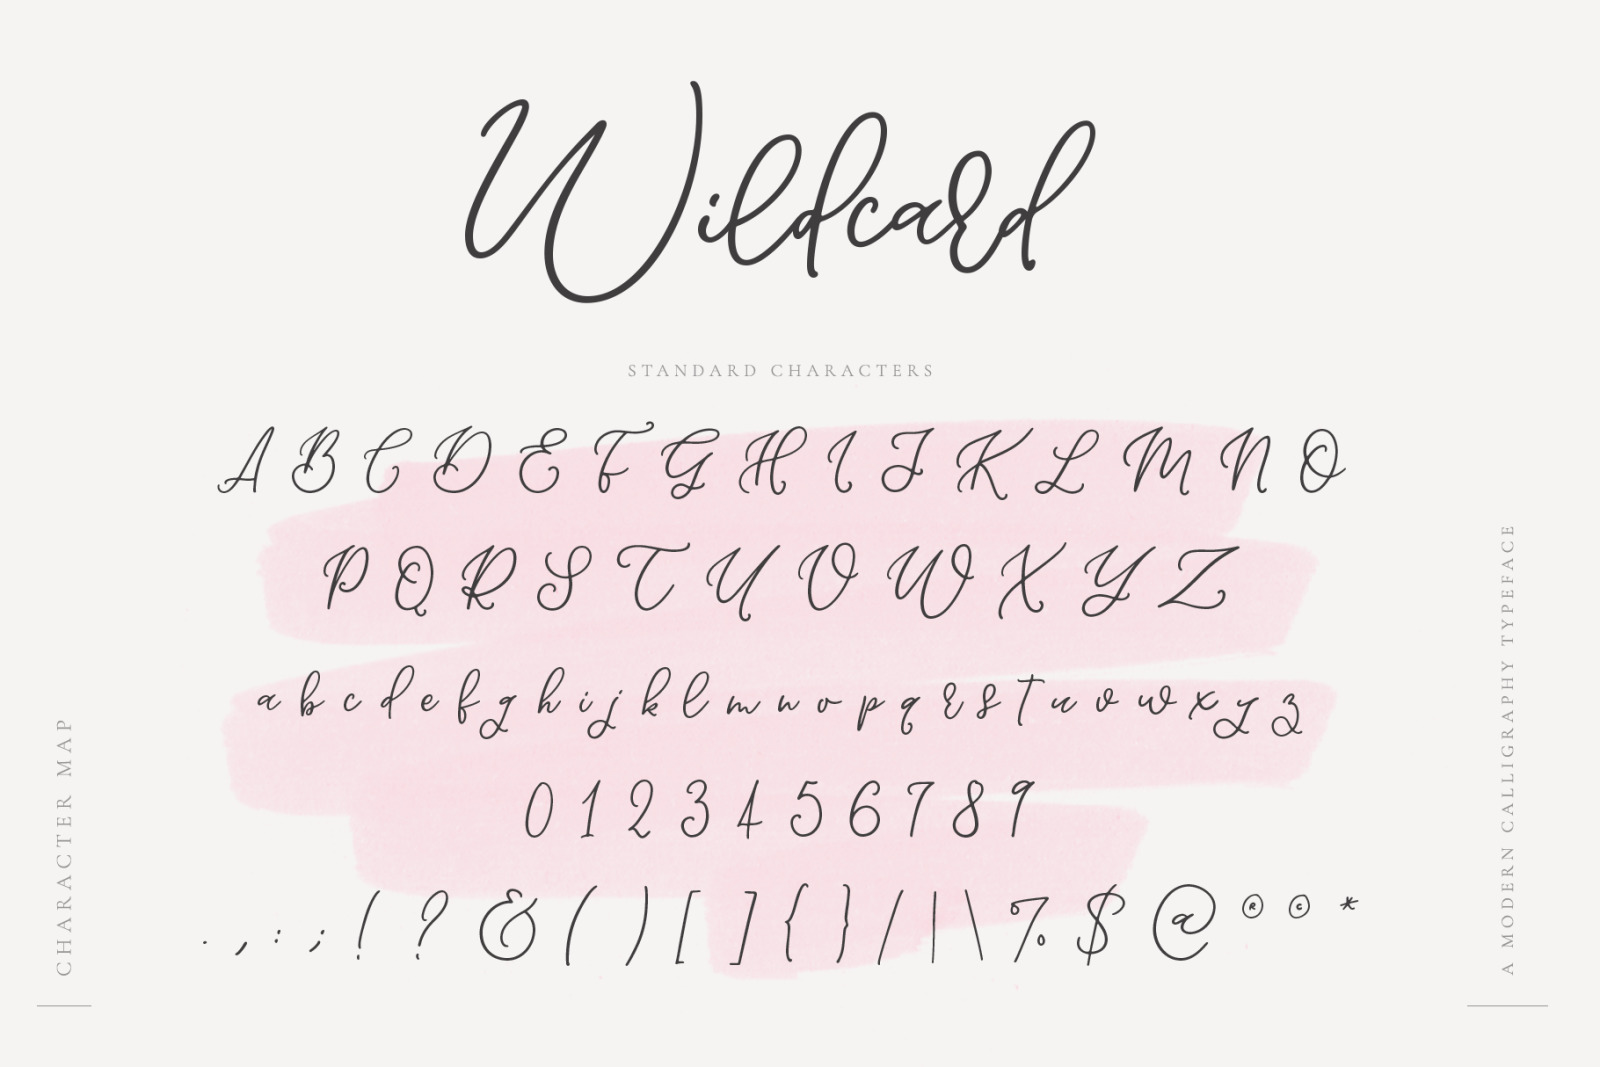 Wildcard
STANDARD CHARACTERS
A B C D E F G H I J K L M N O
P Q R S T U V W X Y Z
a b c d e f g h i j k l m n o p q r s t u v w x y z
0 1 2 3 4 5 6 7 8 9
. , : ; ! ? & ( ) [ ] { } / | \ % $ @ ® © *
CHARACTER MAP
A MODERN CALLIGRAPHY TYPEFACE